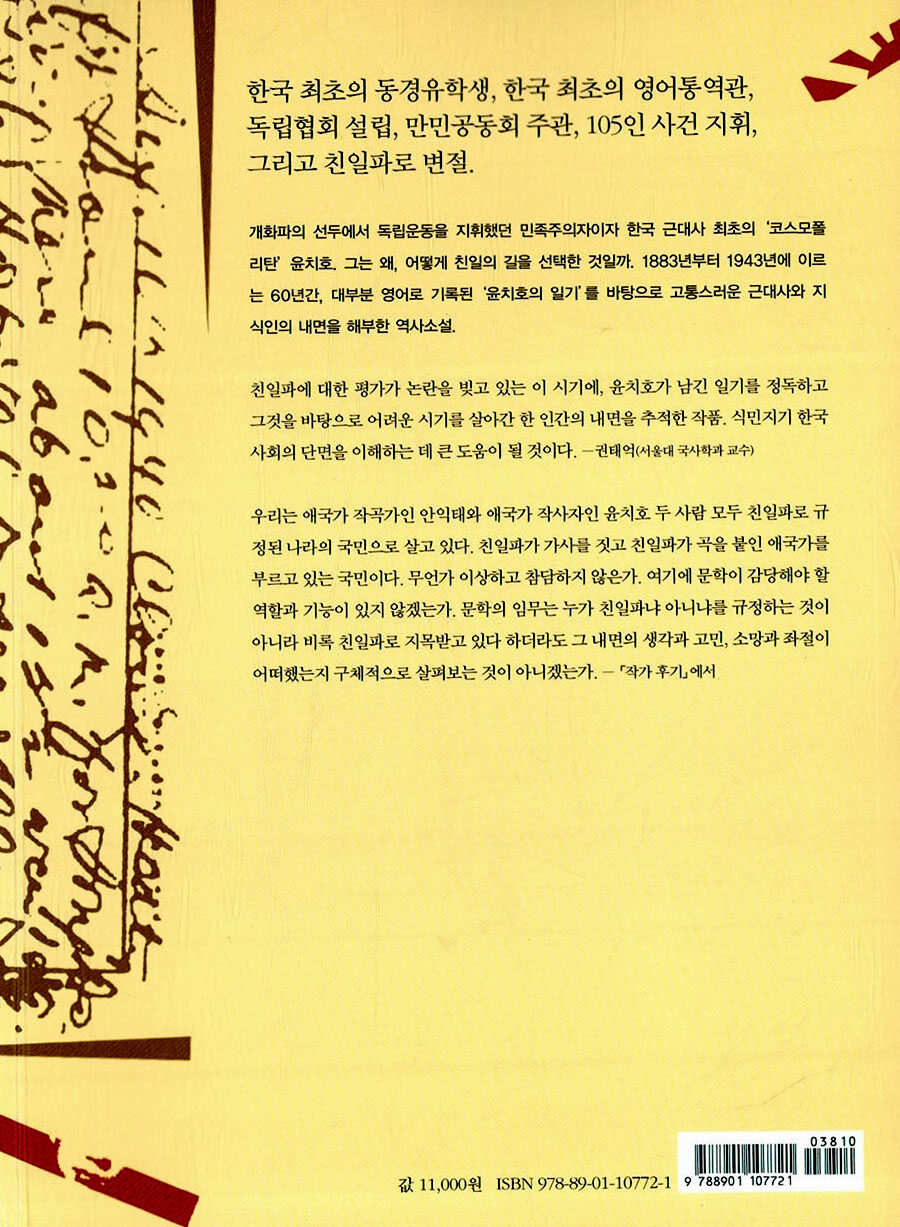 한국 최초의 동경유학생, 한국 최초의 영어통역관,
독립협회 설립, 만민공동회 주관, 105인 사건 지휘,
그리고 친일파로 변절.
개화파의 선두에서 독립운동을 지휘했던 민족주의자이자 한국 근대사 최초의 ‘코스모폴
리탄’ 윤치호. 그는 왜, 어떻게 친일의 길을 선택한 것일까. 1883년부터 1943년에 이르
는 60년간, 대부분 영어로 기록된 ‘윤치호의 일기’를 바탕으로 고통스러운 근대사와 지
식인의 내면을 해부한 역사소설.
친일파에 대한 평가가 논란을 빚고 있는 이 시기에, 윤치호가 남긴 일기를 정독하고
그것을 바탕으로 어려운 시기를 살아간 한 인간의 내면을 추적한 작품. 식민지기 한국
사회의 단면을 이해하는 데 큰 도움이 될 것이다. —권태억(서울대 국사학과 교수)
우리는 애국가 작곡가인 안익태와 애국가 작사자인 윤치호 두 사람 모두 친일파로 규
정된 나라의 국민으로 살고 있다. 친일파가 가사를 짓고 친일파가 곡을 붙인 애국가를
부르고 있는 국민이다. 무언가 이상하고 참담하지 않은가. 여기에 문학이 감당해야 할
역할과 기능이 있지 않겠는가. 문학의 임무는 누가 친일파냐 아니냐를 규정하는 것이
아니라 비록 친일파로 지목받고 있다 하더라도 그 내면의 생각과 고민, 소망과 좌절이
어떠했는지 구체적으로 살펴보는 것이 아니겠는가. — 「작가 후기」에서
값 11,000원 ISBN 978-89-01-10772-1
03810
9 788901 107721